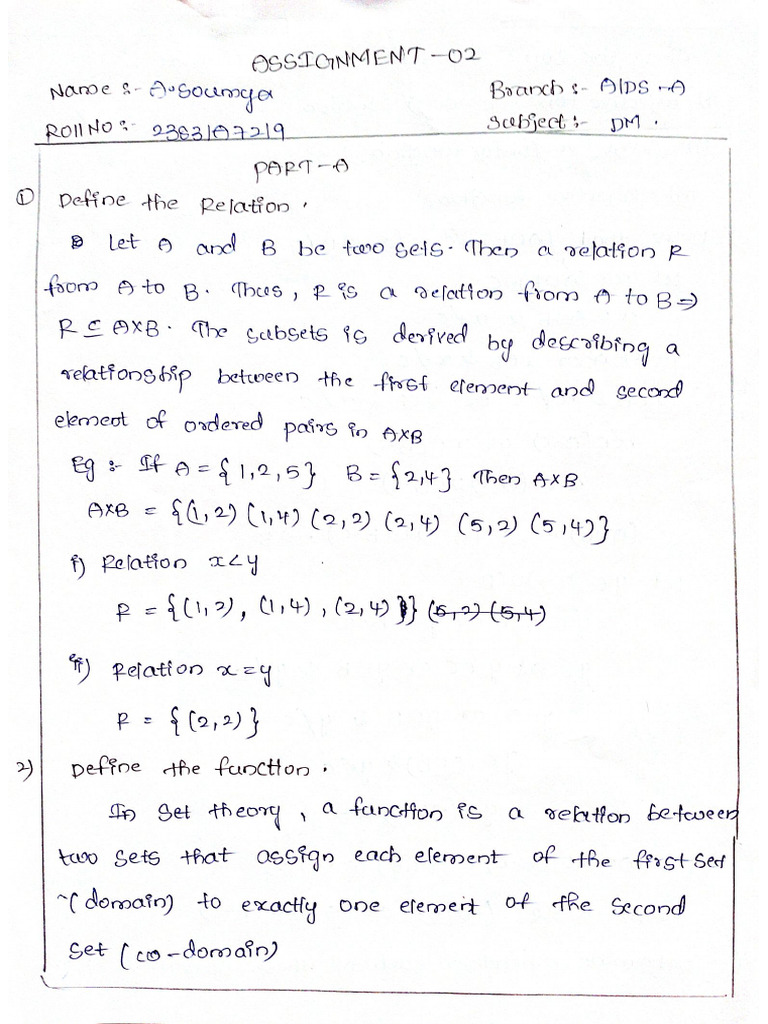 ASSIGNMENT-02
Name :- A.Soumya Branch :- AIDS-A
Roll No :- 23631A7219 Subject :- DM.
PART-A
① Define the Relation.
Let A and B be two sets. Then a relation R
from A to B. Thus, R is a relation from A to B ⇒
R ⊆ A×B. The subsets is derived by describing a
relationship between the first element and second
element of ordered pairs in A×B
Eg :- If A = {1,2,5} B = {2,4} Then A×B
A×B = {(1,2) (1,4) (2,2) (2,4) (5,2) (5,4)}
i) Relation x<y
R = {(1,2), (1,4), (2,4)} (5,2) (5,4)
ii) Relation x=y
R = {(2,2)}
2) Define the function.
In Set theory, a function is a relation between
two sets that assign each element of the first set
(domain) to exactly one element of the second
set (co-domain)